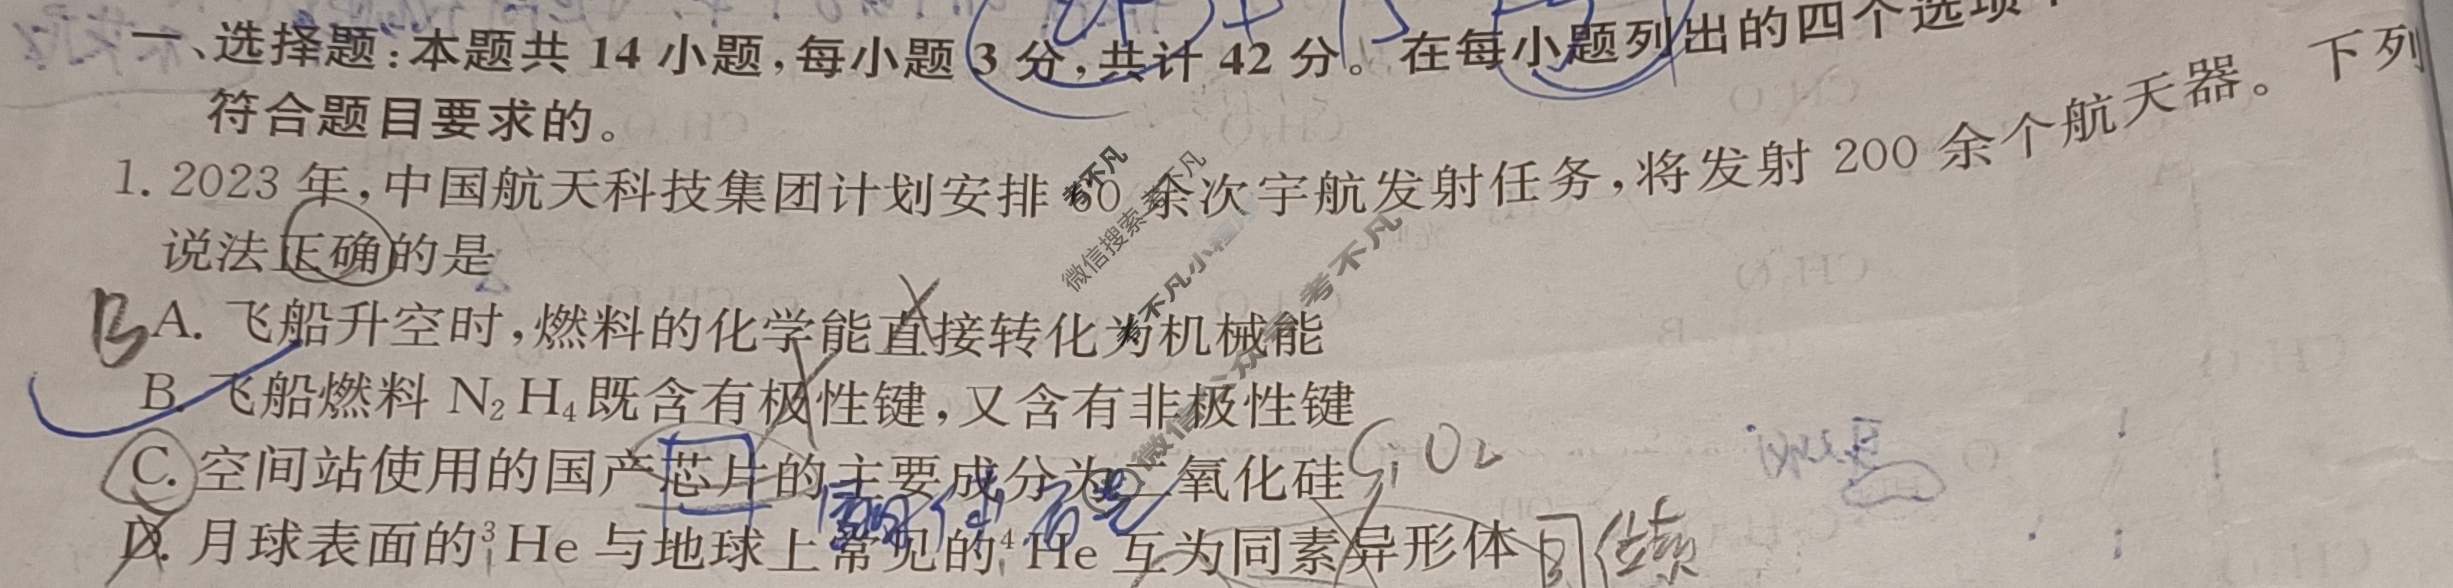 一、选择题:本题共 14 小题,每小题 3 分,共计 42 分。在每小题列出的四个选项
符合题目要求的。
1. 2023 年,中国航天科技集团计划安排 60 余次宇航发射任务,将发射 200 余个航天器。下列
说法正确的是
B
A. 飞船升空时,燃料的化学能直接转化为机械能
B. 飞船燃料 N₂H₄既含有极性键,又含有非极性键
C. 空间站使用的国产芯片的主要成分为二氧化硅 SiO₂
D. 月球表面的³₁He 与地球上常见的⁴₁He 互为同素异形体 同位素
考不凡
微信搜索考不凡
考不凡小程序
微信公众号 考不凡